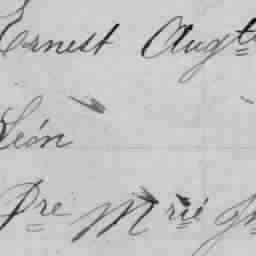 Ernest Augte
Léon
Pre Mrie